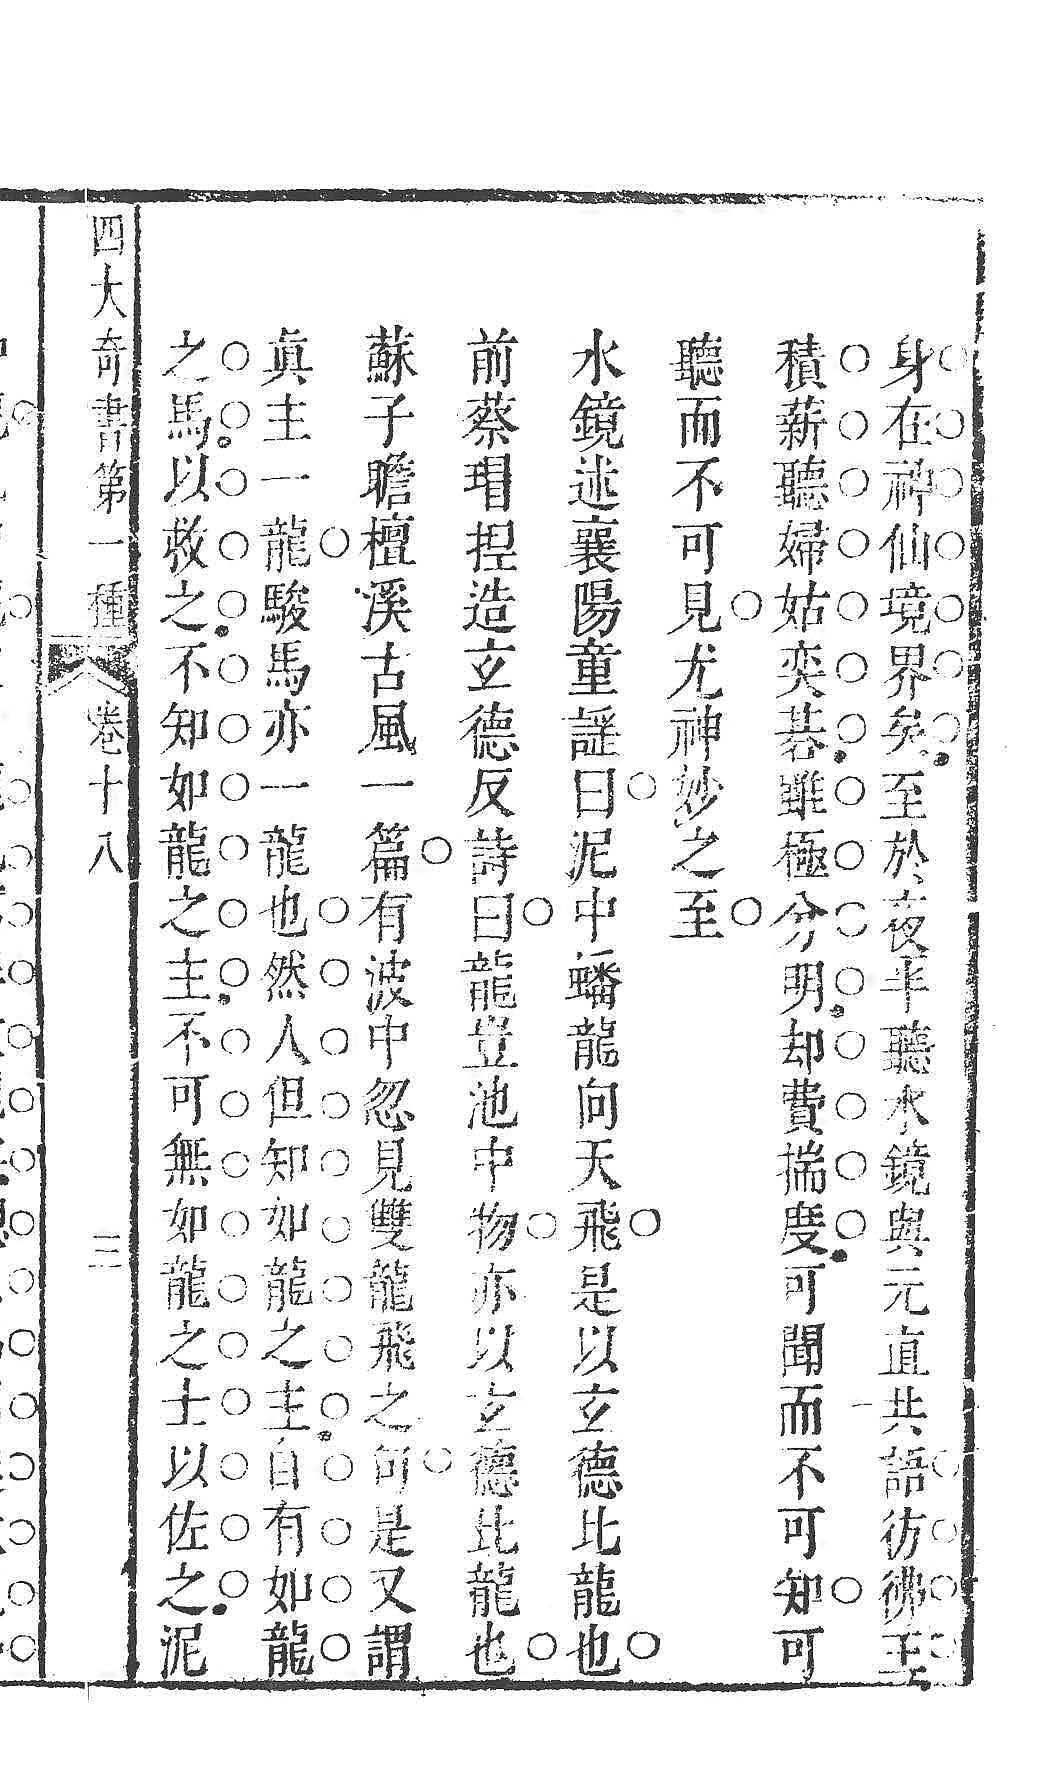 身在神仙境界矣至於夜半聽水鏡與元直共語彷彿王
積薪聽婦姑奕碁雖極分明却費揣度可聞而不可知可
聽而不可見尤神妙之至
水鏡述襄陽童謡曰泥中蟠龍向天飛是以玄德比龍也
前蔡瑁揑造玄德反詩曰龍豈池中物亦以玄德比龍也
蘇子瞻檀溪古風一篇有波中忽見雙龍飛之句是又謂
真主一龍駿馬亦一龍也然人但知如龍之主自有如龍
之馬以救之不知如龍之主不可無如龍之士以佐之泥
四大奇書第一種 卷十八 三